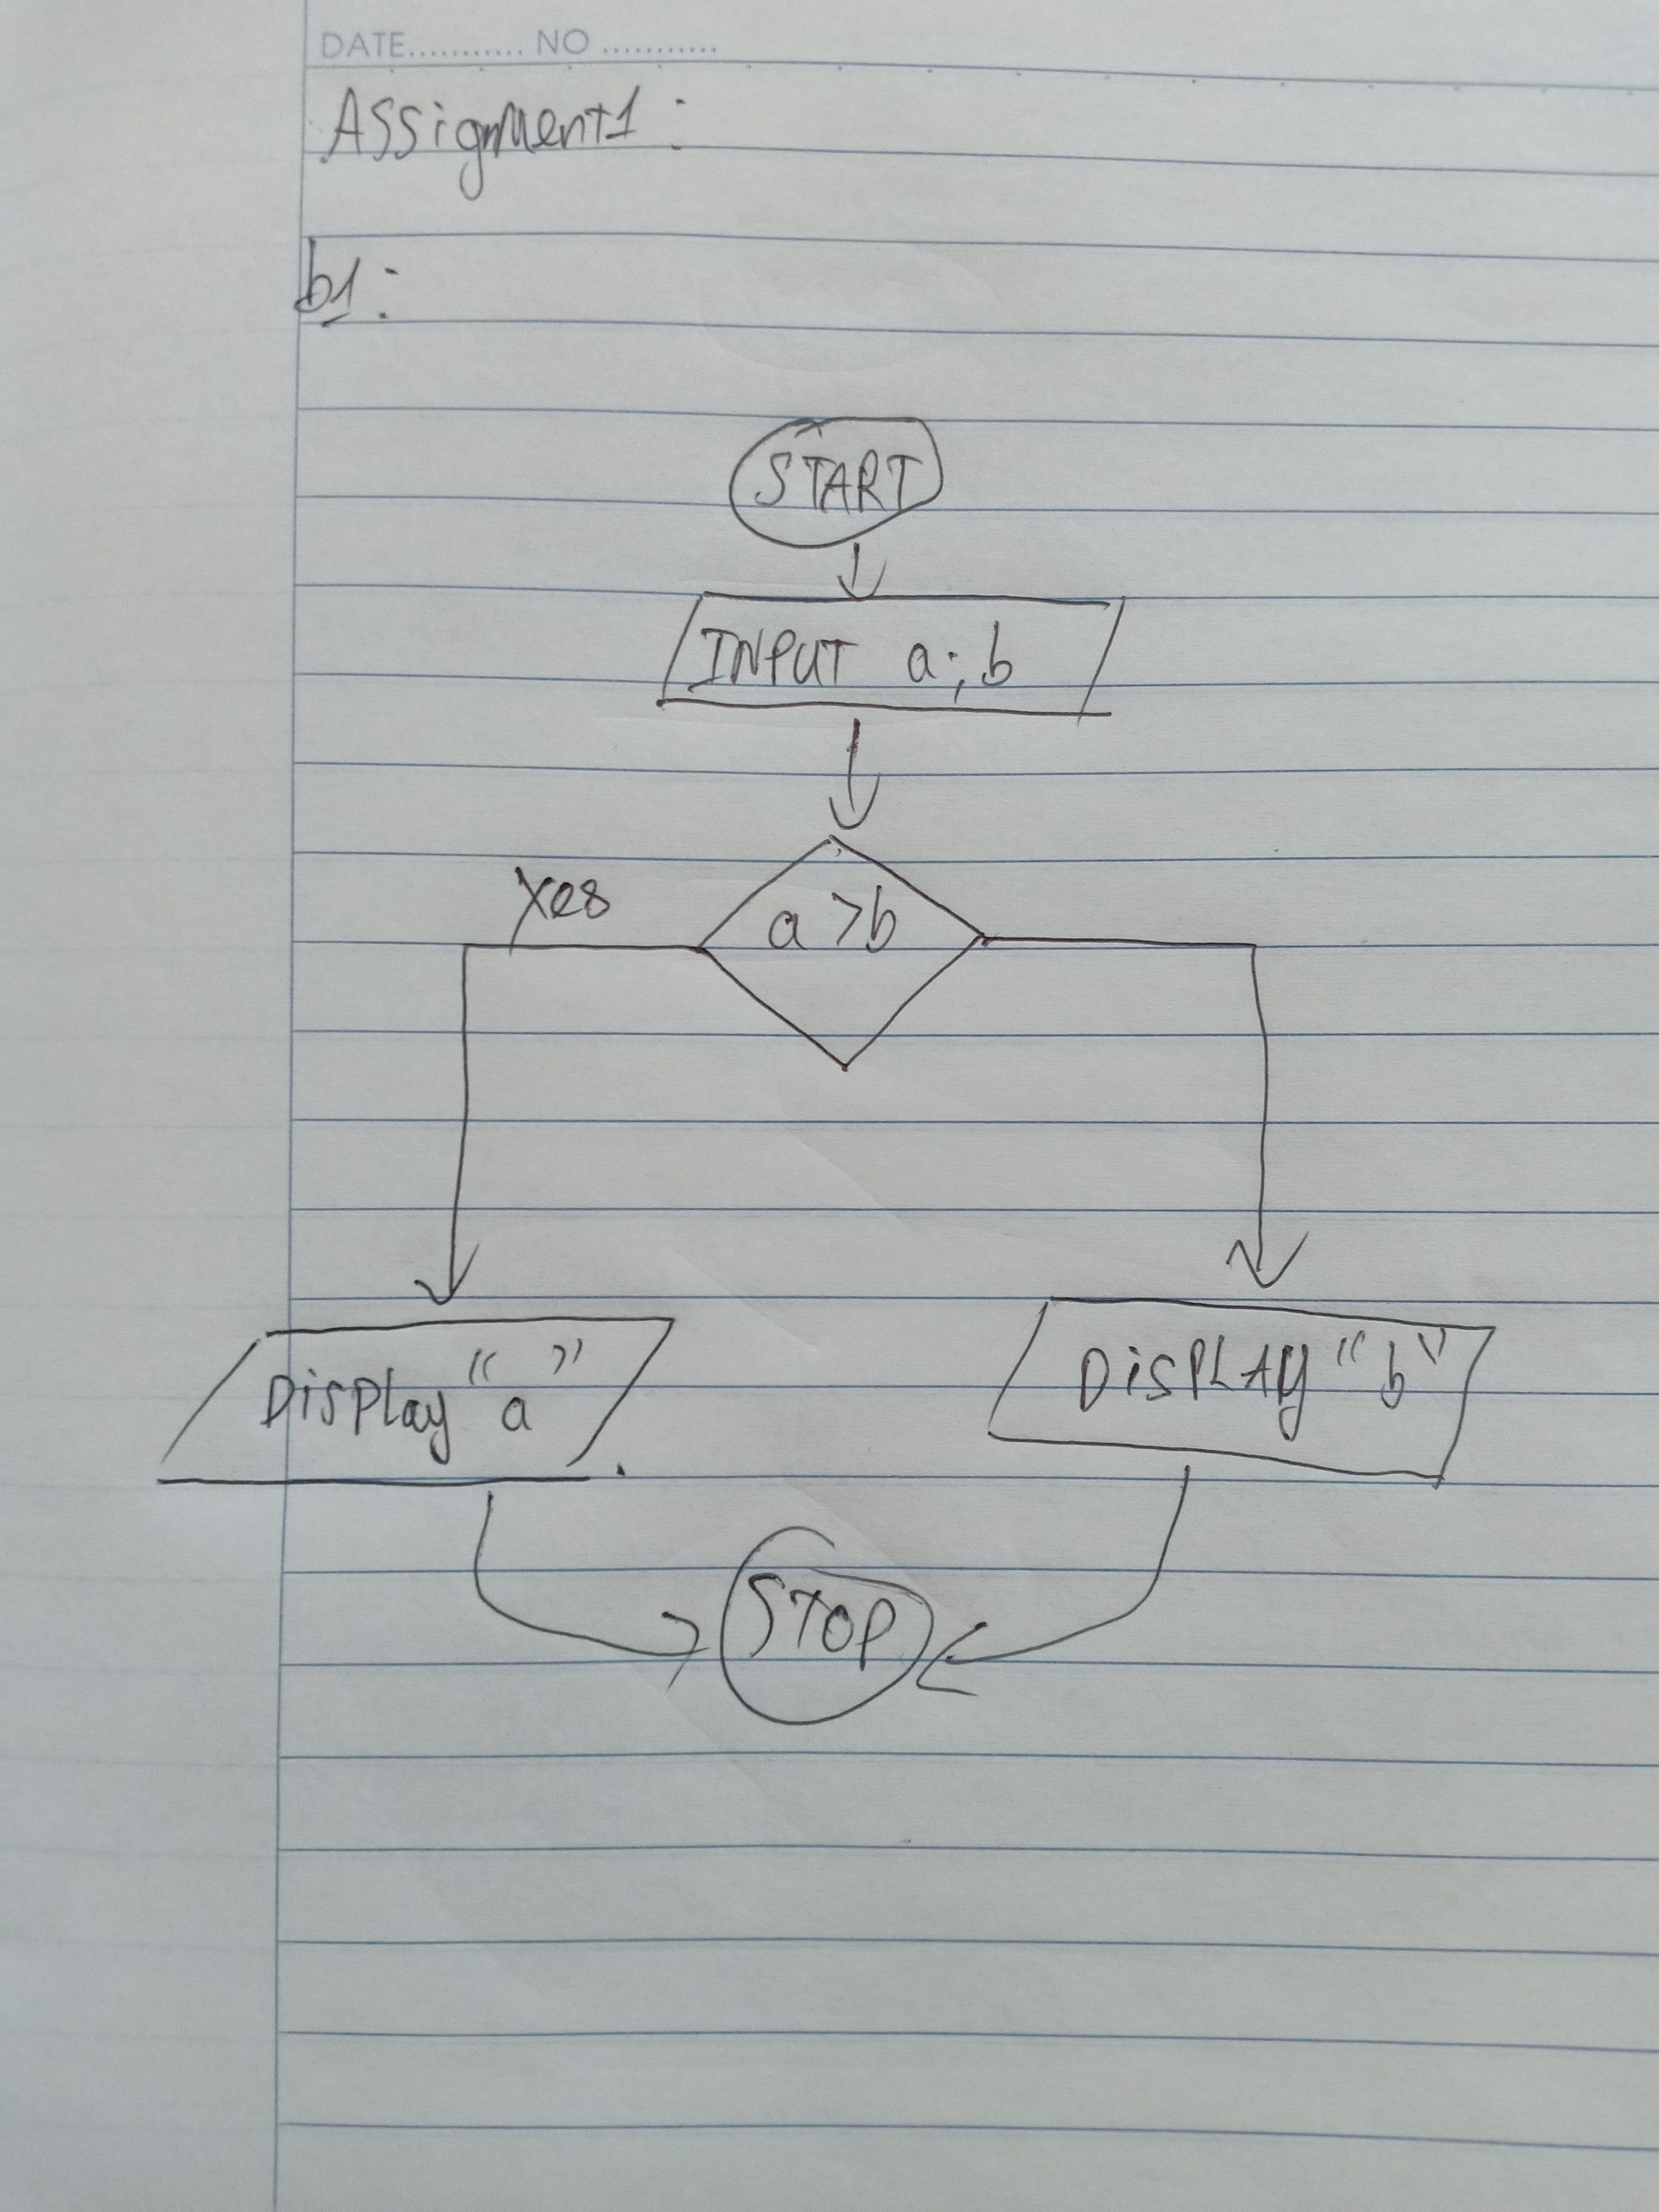 DATE........... NO ...........
Assignment1:
b1:
START
INPUT a; b
a >b
Yes
Display "a"
DiSPLAy "b"
STOP